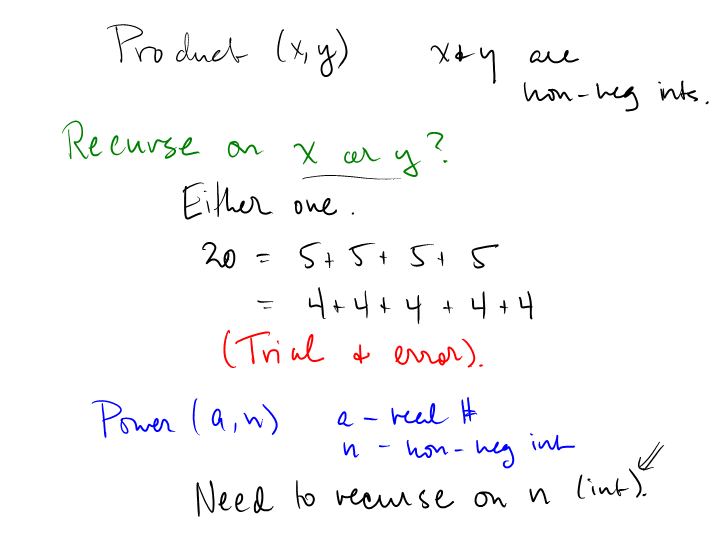 Product (x, y) x & y are
non-neg ints.
Recurse on x or y?
Either one.
20 = 5 + 5 + 5 + 5
= 4 + 4 + 4 + 4 + 4
(Trial & error).
Power (a, n) a - real #
n - non-neg int
Need to recurse on n (int).